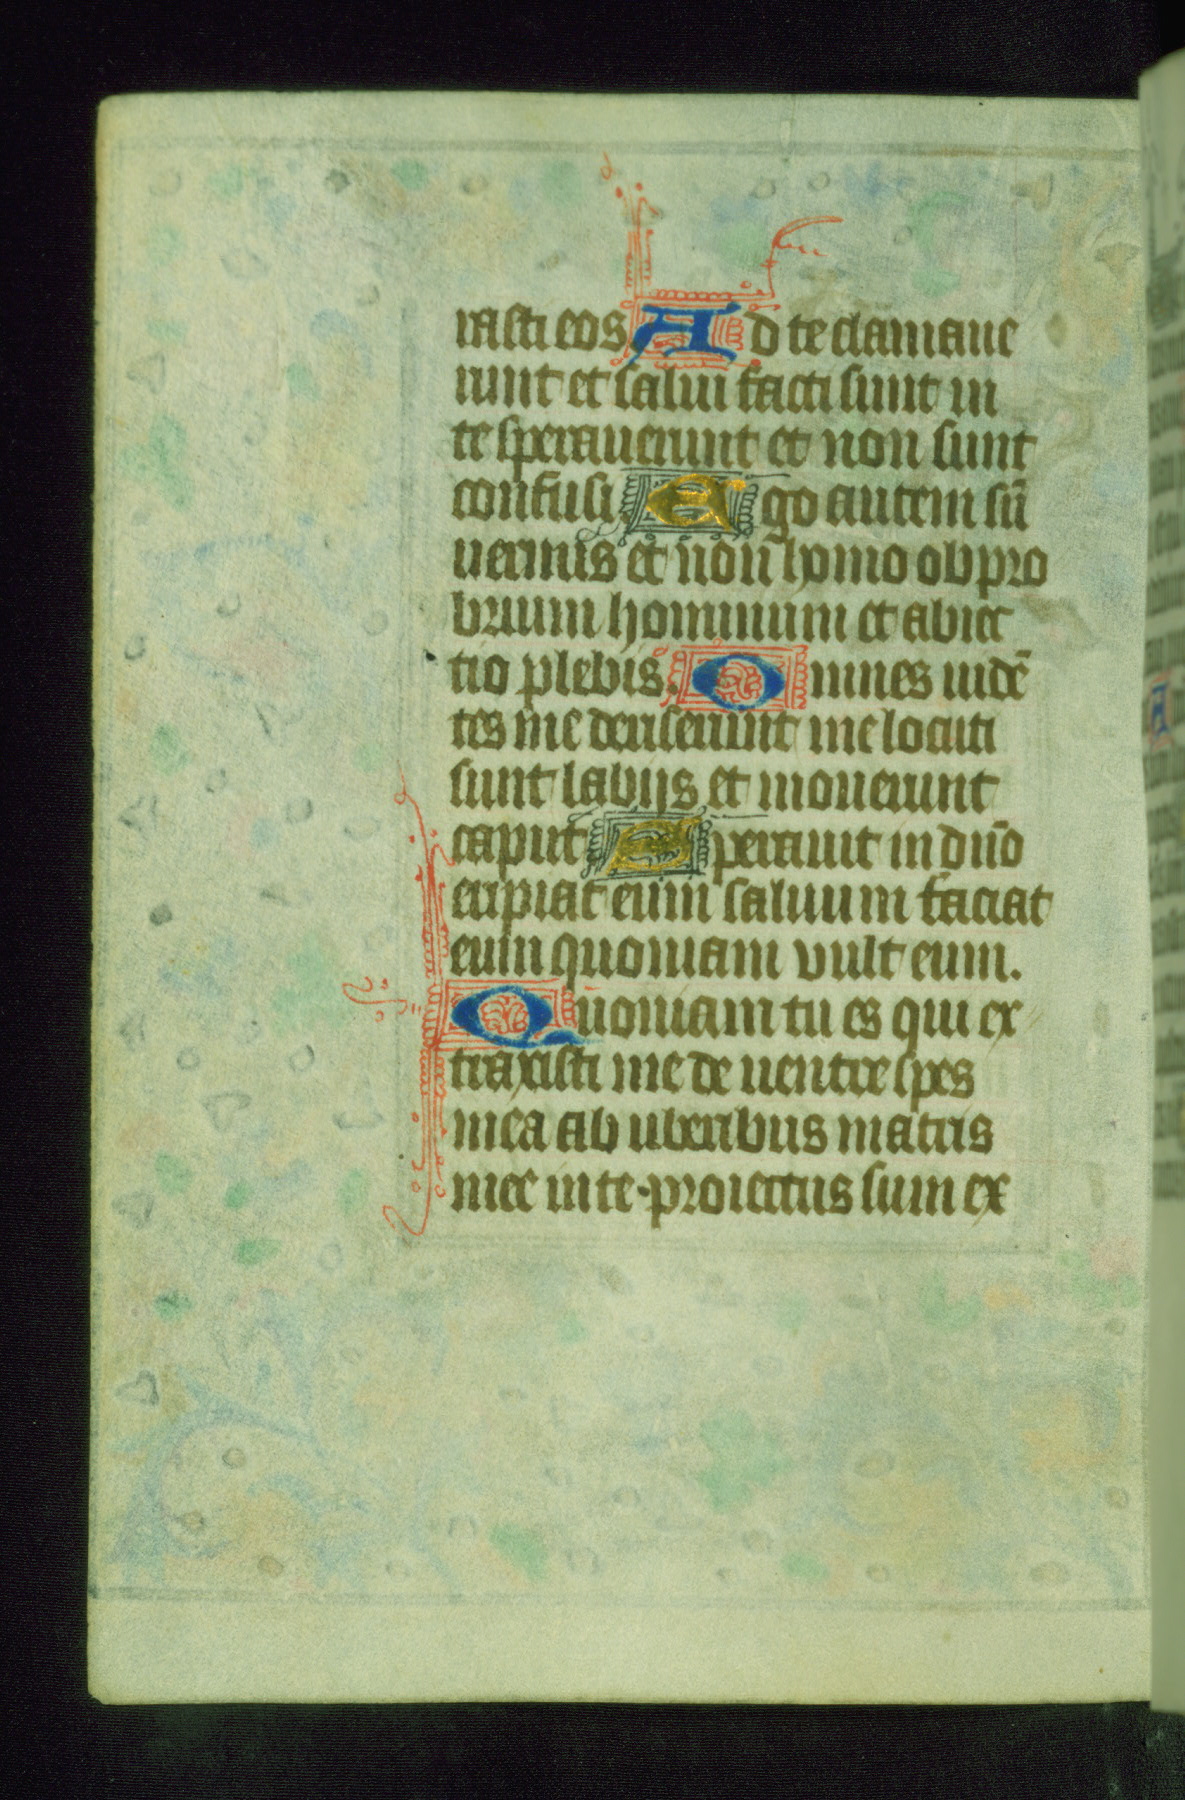 rasti eos Ad te clamaue
runt et salui facti sunt in
te sperauerunt et non sunt
confusi Ego autem sū
uermis et non homo obpro
brium hominum et abiec
tio plebis. Omnes uidē
tes me deriserunt me locuti
sunt labijs et mouerunt
caput Sperauit in dn̄o
eripiat eum saluum faciat
eum quoniam vult eum.
Quoniam tu es qui ex
traxisti me de uentre spes
mea ab uberibus matris
mee in te·proiectus sum ex